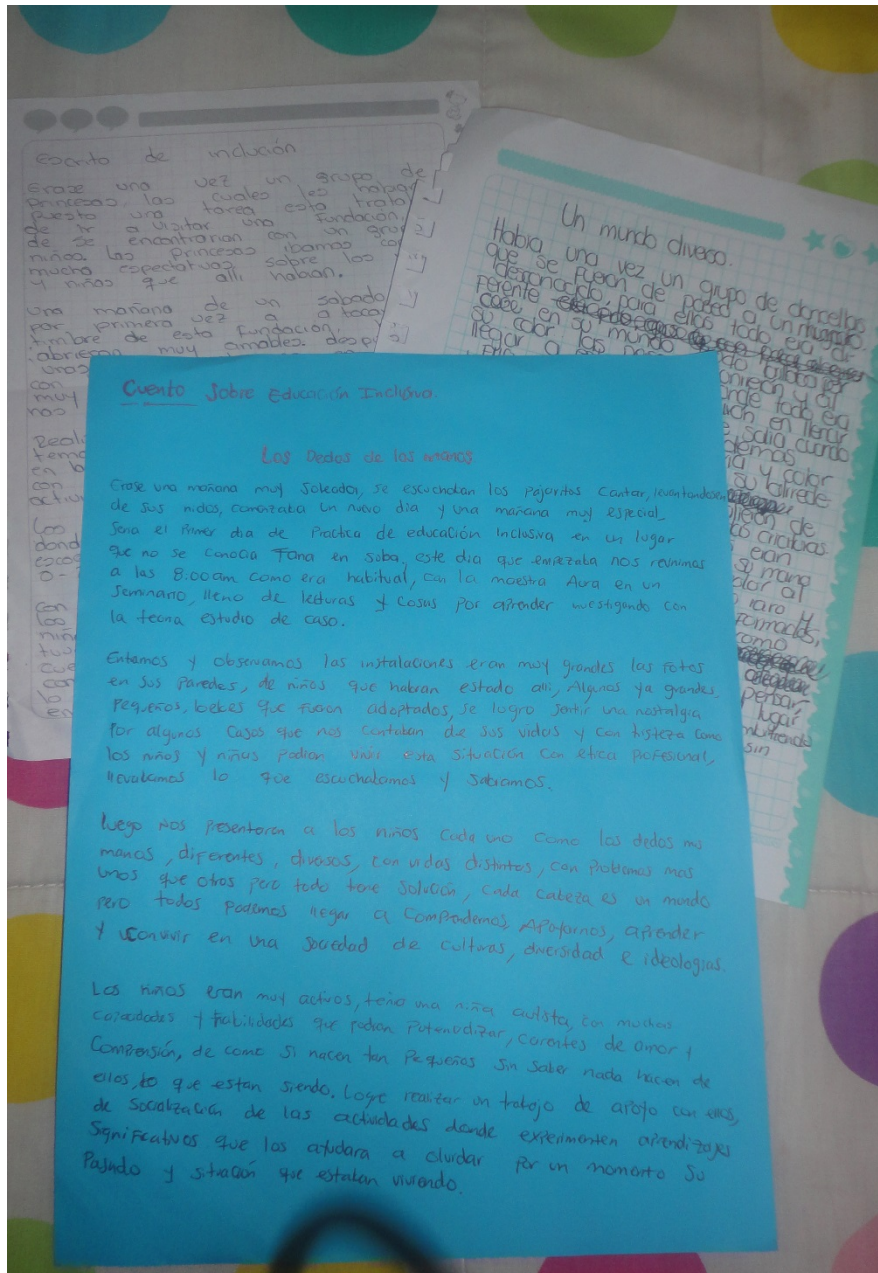 Escrito de inclución
Erase una vez un grupo de
princesas las cuales les habían
puesto una tarea esta trata
de ir a visitar una fundación,
de se encontrarian con un grupo
niños. Las princesas ibamos con
mucha espectativas sobre los
y niños que allí habian.
Una mañana de un sabado
por primera vez a a tocar
timbre de esta fundación,
abrieron muy amables. desp
unos
con
muy
nos
Reali
tema
en b
con
activi
Los
dond
escog
0-
Con
las
niñ
tuv
que
con
en
Un mundo diverso.
Había una vez un grupo de doncellas
que se fueron de paseo a un mundo
desconocido, para ellas todo era di
ferente
en su mundo
su color las
llegar a
todo era
en llenar
salia cuando
y color
su alrede
de
criaturas
eran
su mano
color al
raro y
formados,
como
pensar
lugar
sin
Cuento Sobre Educación Inclusiva.
Los Dedos de las manos
Erase una mañana muy soleador, se escuchaban los pajaritos cantar, levantandosen
de sus nidos, comenzaba un nuevo dia y una mañana muy especial,
Seria el Primer dia de Practica de educación inclusiva en un lugar
que no se conocia Fana en Suba, este dia que empezaba nos reunimos
a las 8:00am como era habitual, con la maestra Aura en un
Seminario, lleno de lecturas y cosas por aprender investigando con
la tecna estudio de caso.
Entamos y observamos las instalaciones eran muy grandes las Fotos
en sus Paredes, de niños que habian estado alli, Algunos ya grandes,
Pequeños, bebes que fueron adoptados, se logro sentir una nostalgia
Por algunos casos que nos contaban de sus vidas y con tristeza como
los niños y niñas podian vivir esta situación con ética profesional,
llevabamos lo que escuchabamos y Sabiamos.
luego nos presentaron a los niños cada uno como los dedos mis
manos, diferentes, diversos, con vidas distintas, con problemas mas
unos que otros pero todo tiene Solución, cada cabeza es un mundo
pero todos podemos llegar a Compendernos, Apoyarnos, aprender
y convivir en una sociedad de culturas, diversidad e ideologias.
Los niños eran muy activos, tenia una niña autista, con muchas
capacidades y habilidades que podian Potenciizar, carentes de amor y
Comprensión, de como si nacen tan Pequeños sin saber nada hacen de
ellos, lo que estan siendo. Logre realizar un trabajo de apoyo con ellos,
de Socialización de las actividades donde experimenten aprendizajes
Significativos que los ayudara a olvidar Por un momento Su
Pasado y situación que estaban viviendo.